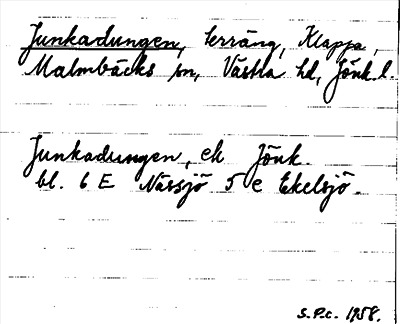 Junkadungen, terräng, Klappa,
Malmbäcks sn, Västra hd, Jönk. l.
Junkadungen, ek Jönk.
bl. 6 E Nässjö 5 e Ekelsjö.
S.P.c. 1958.